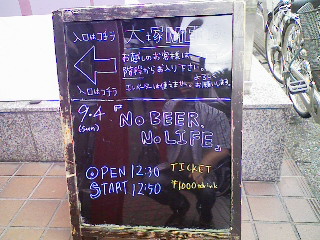 入口はコチラ
大塚MEETS
お越しのお客様は
階段からお入り下さい。
エレベーターは使えません よろしくお願いします
入口はコチラ
9.4 (sun)
『NO BEER,
NO LIFE』
OPEN 12:30 TICKET
START 12:50 ¥1000+drink